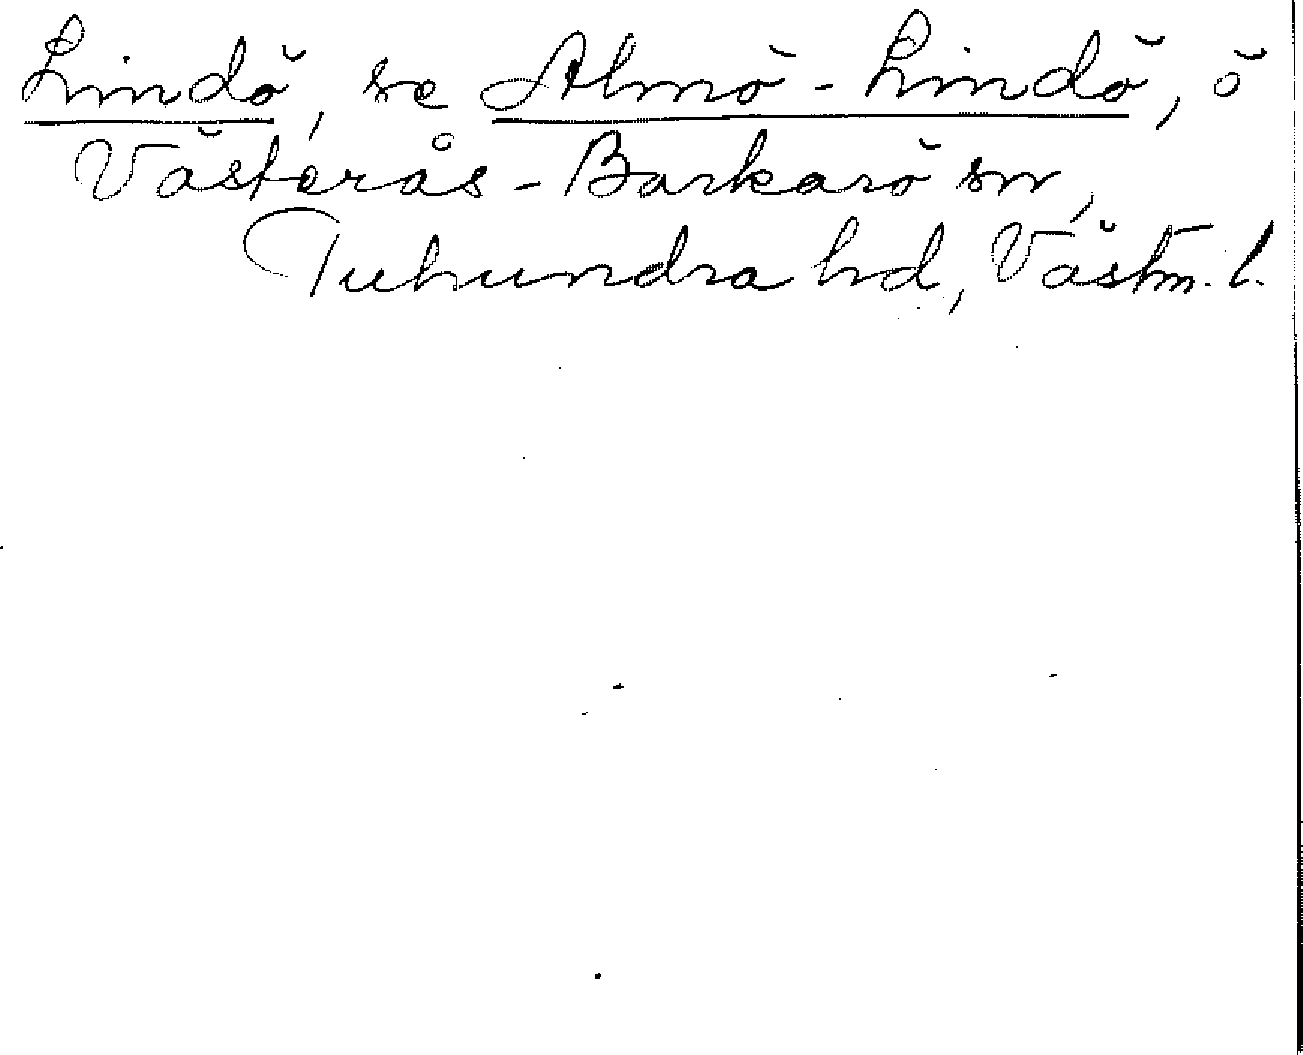 Lindö, se Almö-Lindö, ö
Västerås-Barkarö sn,
Tuhundra hd, Västm. l.